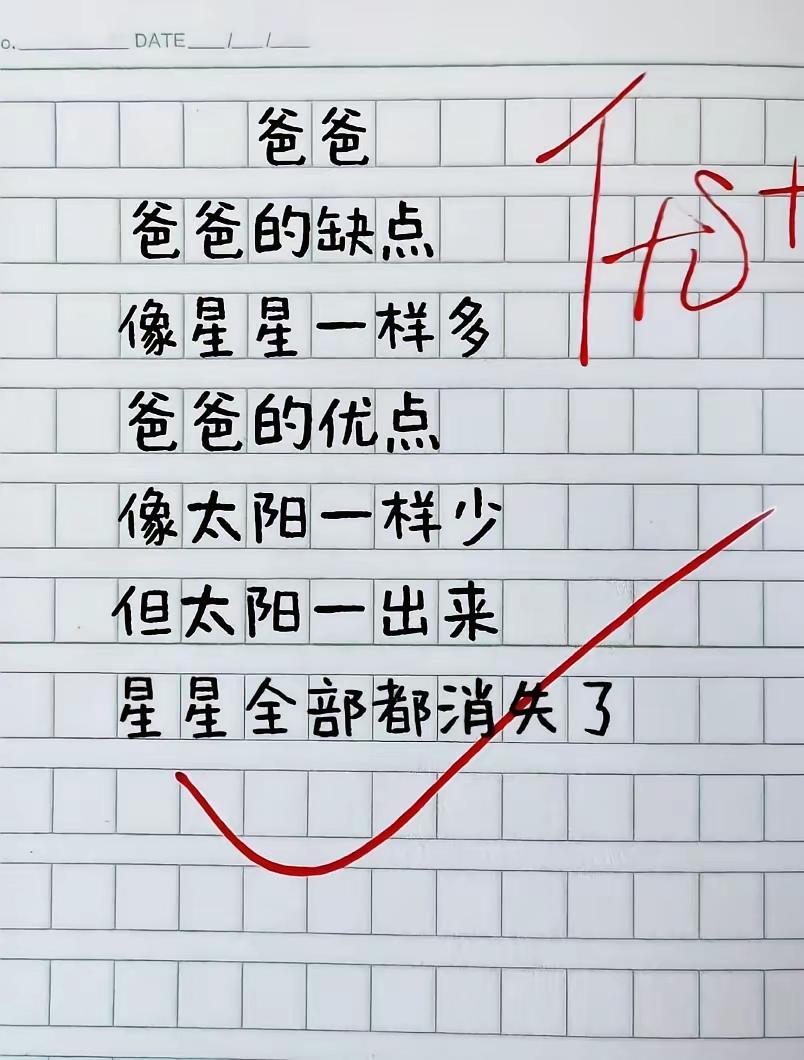 o. DATE / /
爸爸
爸爸的缺点
像星星一样多
爸爸的优点
像太阳一样少
但太阳一出来
星星全部都消失了